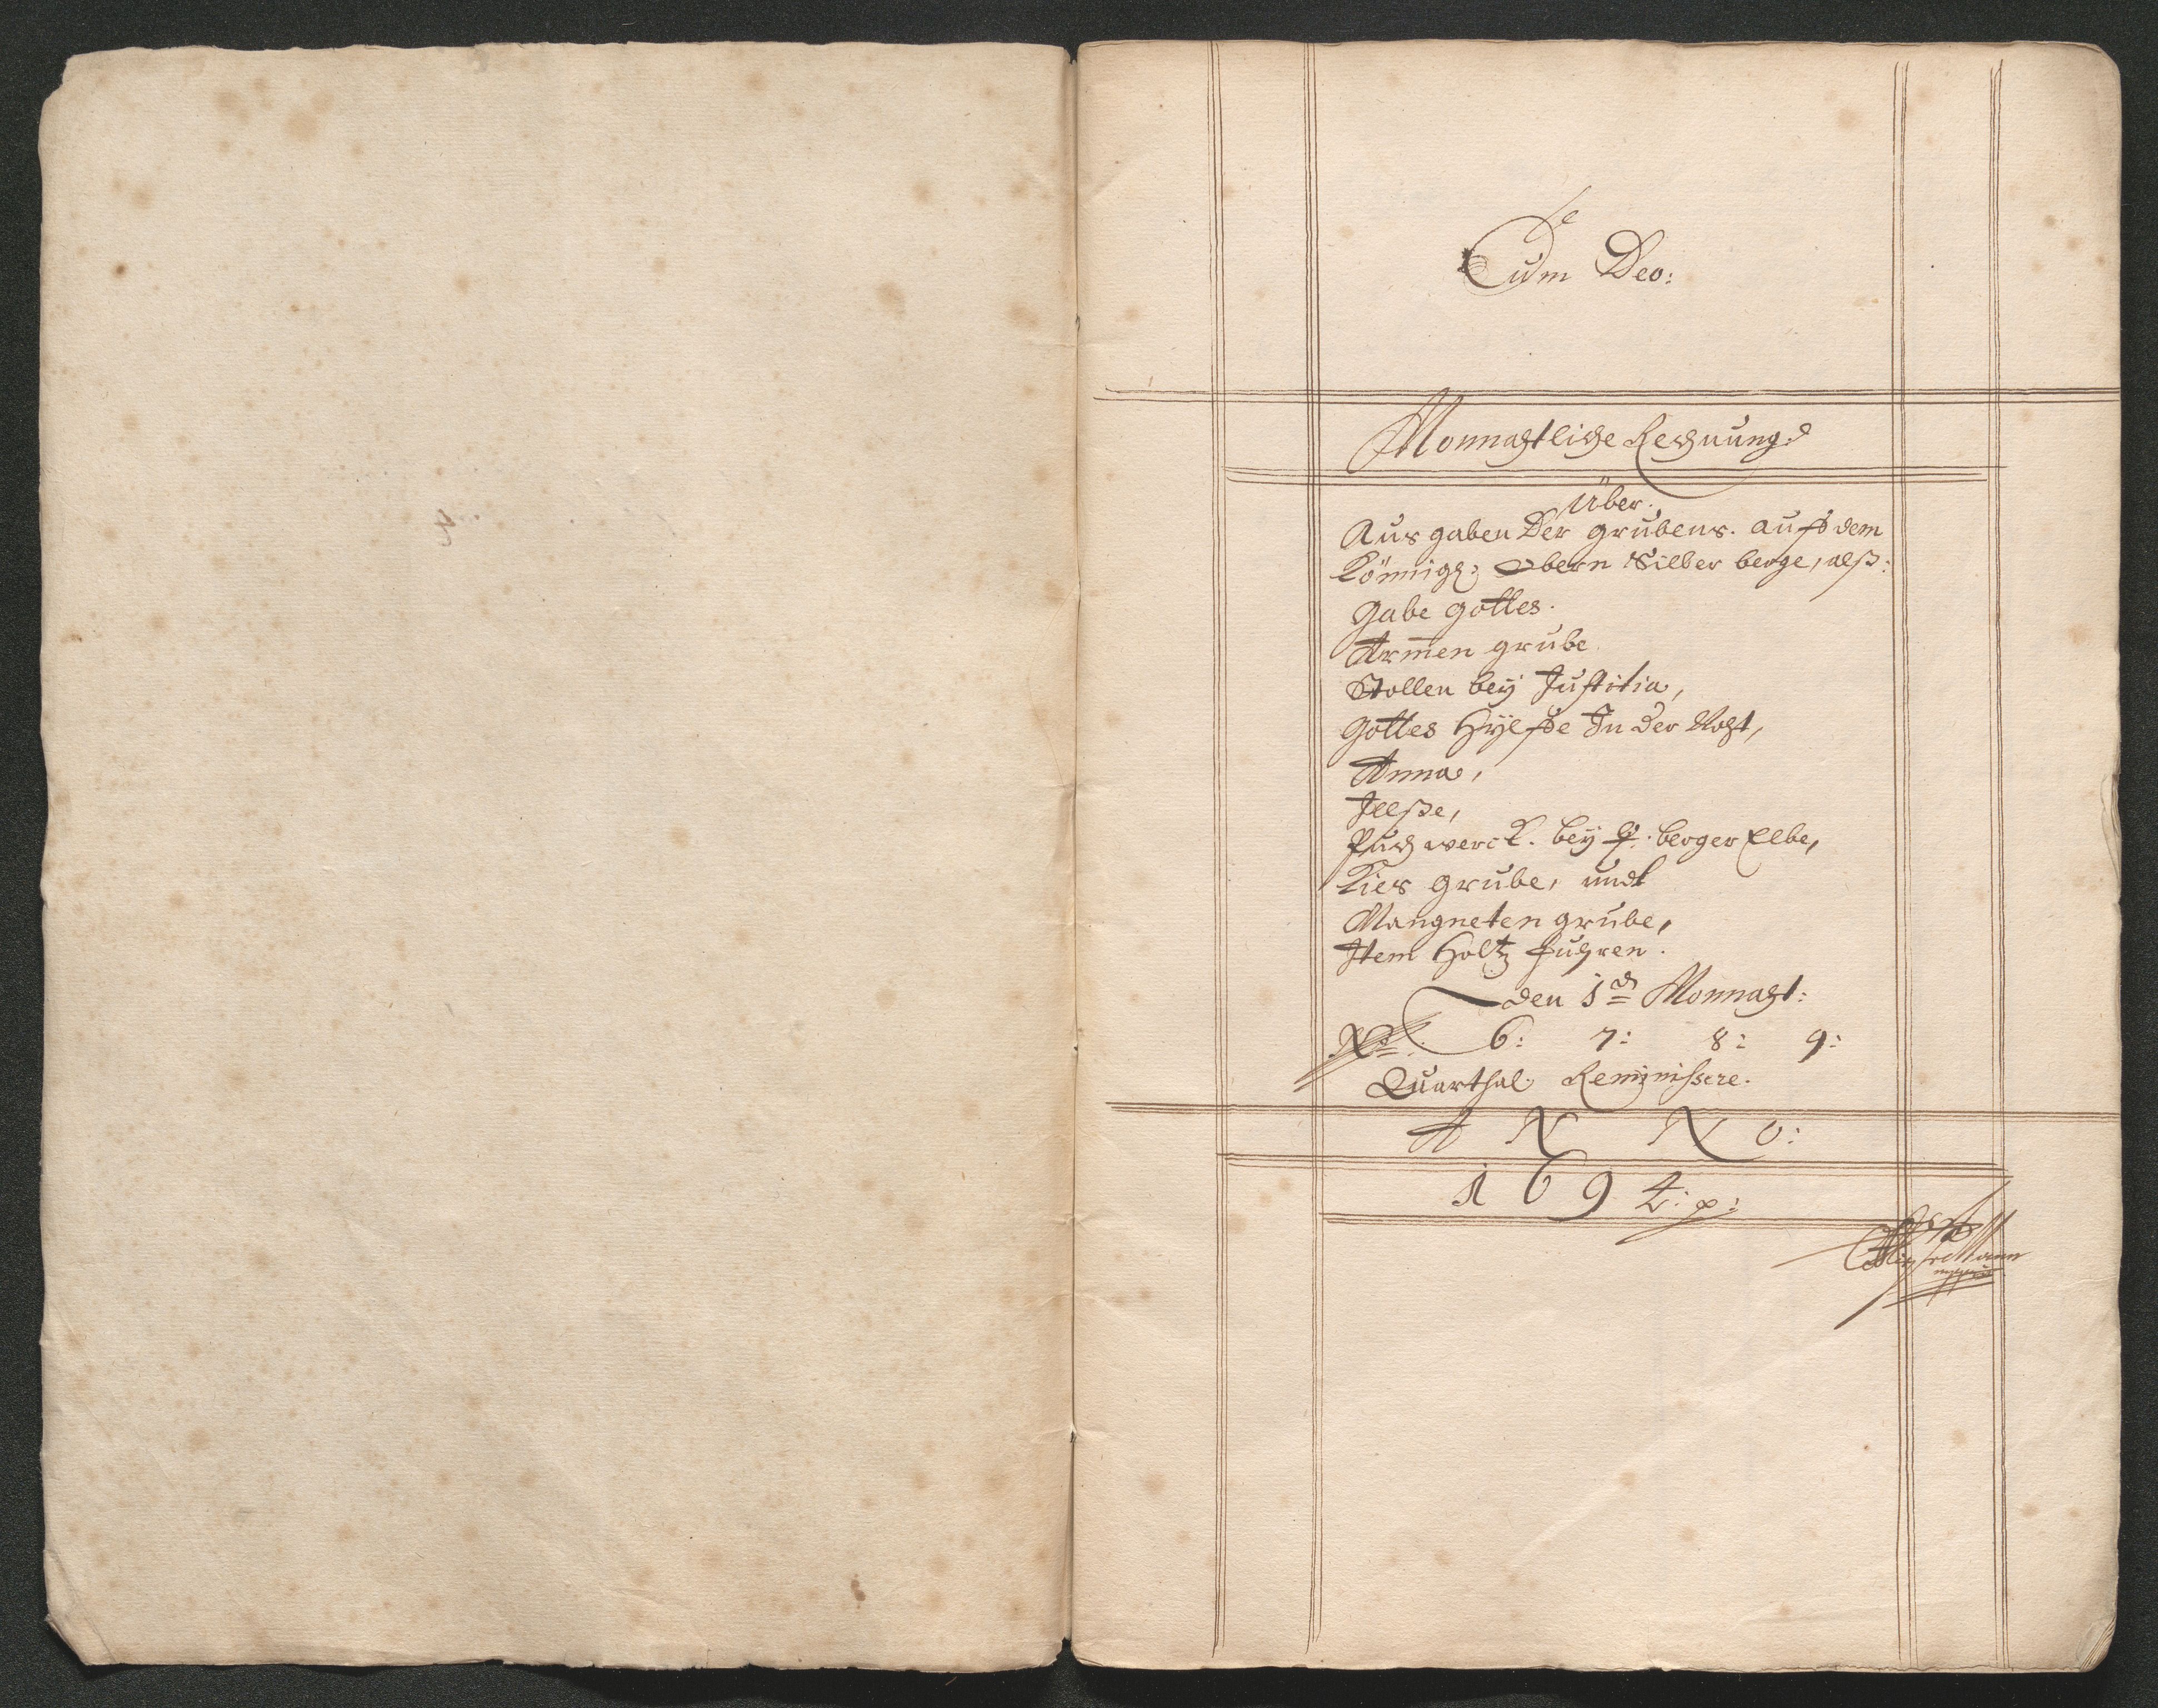 Cum Deo:
Monnahtliche Rechnung:
Über.
Ausgaben Der grubens. auff dem
Königl: Obern Silber berge, alß:
Gabe Gottes.
Arm̄en grube
Stollen beÿ Justitia,
Gottes Hÿlffe In der Noht,
Anna,
Jllße,
Puchwerck. beÿ berger Elbe,
Kies grube, undt
Mangneten grube,
Item Holtz fuhren.
den 3 Monnaht:
N: 6: 7: 8: 9:
Quarthal Reminiscere.
A N N O:
1694: p: